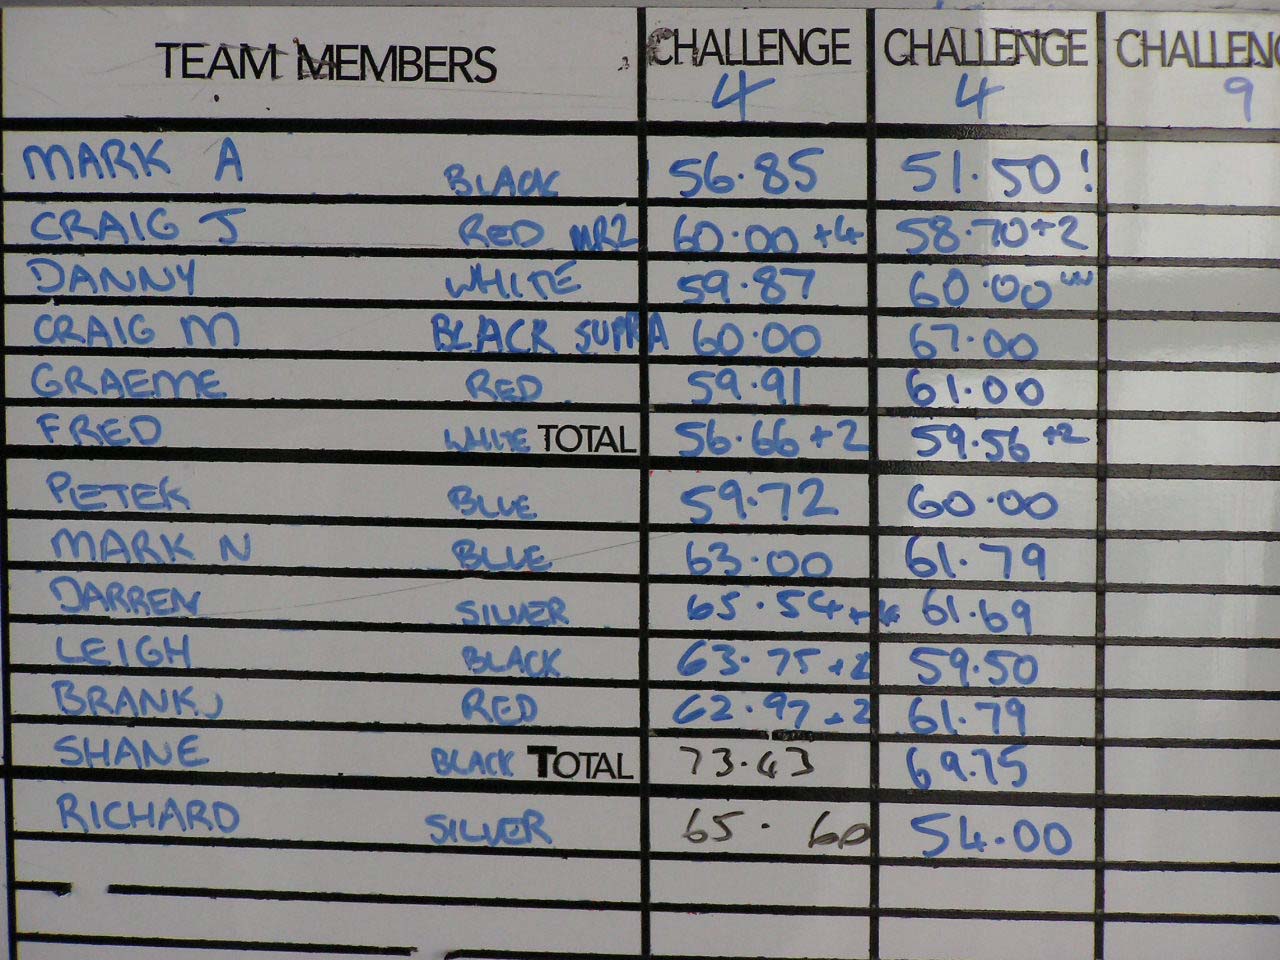 TEAM MEMBERS CHALLENGE CHALLENGE CHALLENG
4 4 9
MARK A BLACK 56.85 51.50!
CRAIG J RED MR2 60.00 +4 58.70+2
DANNY WHITE 59.87 60.00
CRAIG M BLACK SUPRA 60.00 67.00
GRAEME RED 59.91 61.00
FRED WHITE TOTAL 56.66 +2 59.56 +2
PETEK BLUE 59.72 60.00
MARK N BLUE 63.00 61.79
DARREN SILVER 65.54 61.69
LEIGH BLACK 63.75 +2 59.50
BRANKO RED 62.97 +2 61.79
SHANE BLACK TOTAL 73.43 69.75
RICHARD SILVER 65.60 54.00